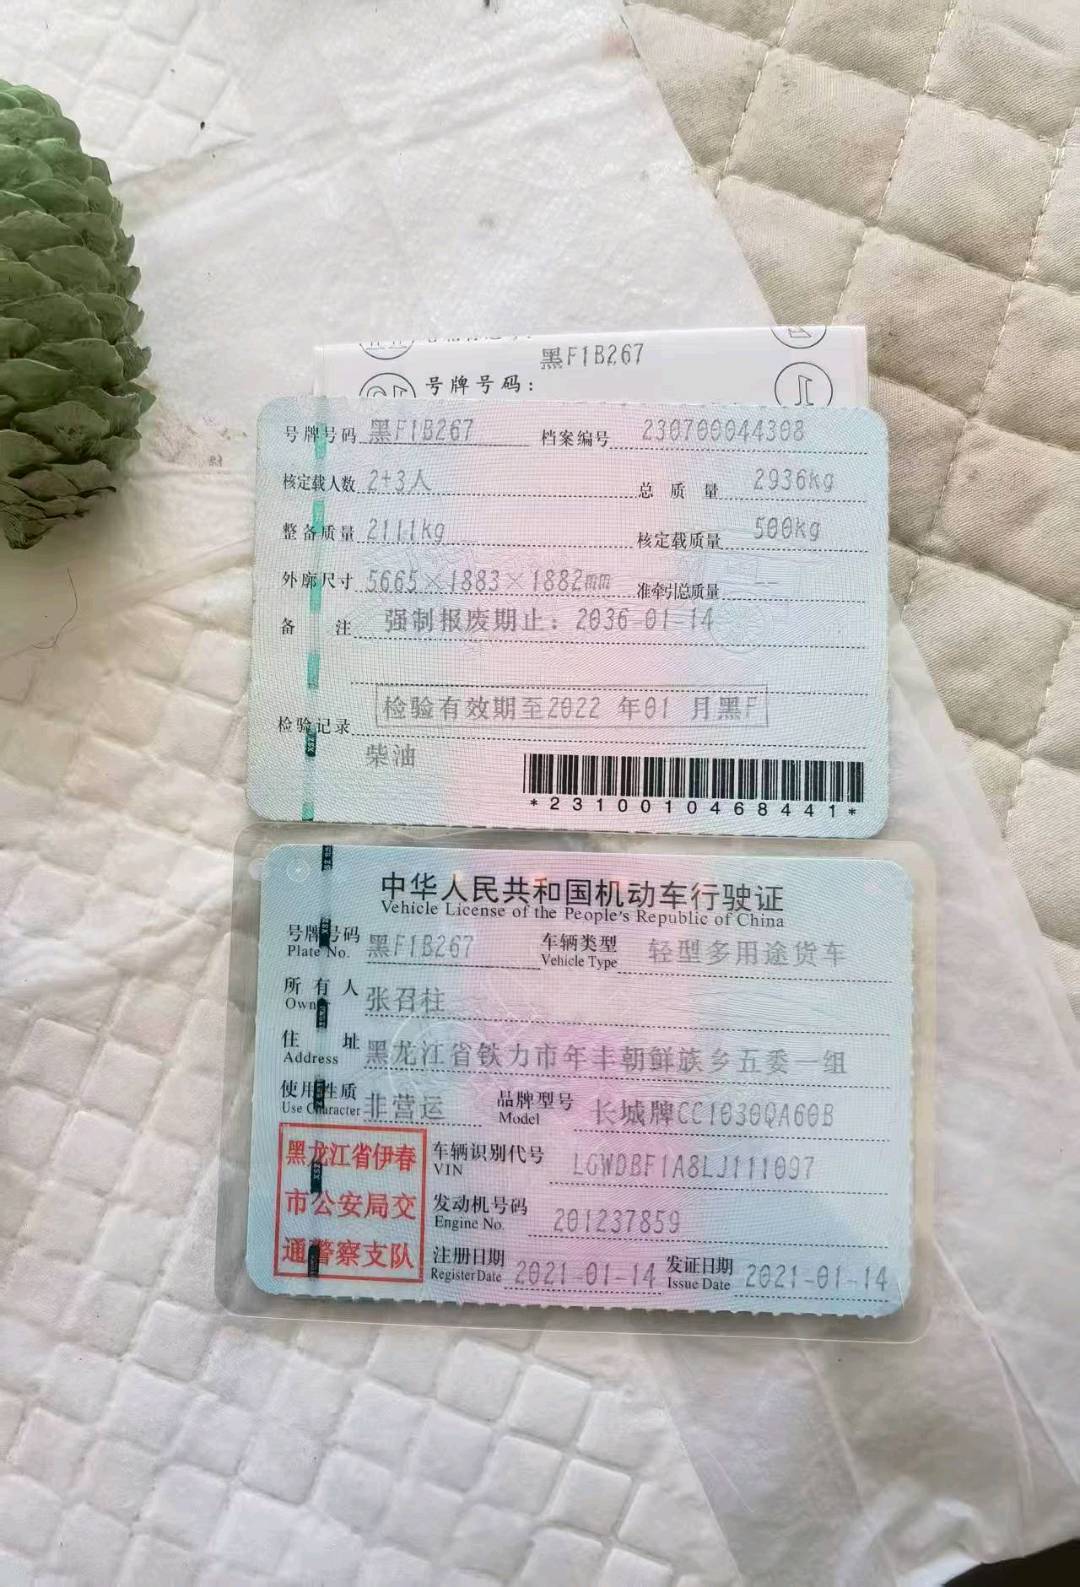 黑F1B267
号牌号码:
号牌号码 黑F1B267 档案编号 230700044308
核定载人数 2+3人 总质量 2936kg
整备质量 2111kg 核定载质量 500kg
外廓尺寸 5665×1883×1882mm 准牵引总质量 --
备注 强制报废期止: 2036-01-14
检验记录 检验有效期至2022 年01 月黑F
柴油
*2310010468441*
中华人民共和国机动车行驶证
Vehicle License of the People's Republic of China
号牌号码 黑F1B267 车辆类型 轻型多用途货车
Plate No. Vehicle Type
所有人 张召柱
Owner
住址 黑龙江省铁力市年丰朝鲜族乡五委一组
Address
使用性质 非营运 品牌型号 长城牌CC1030QA60B
Use Character Model
黑龙江省伊春 车辆识别代号 LGWDBF1A8LJ111097
VIN
市公安局交 发动机号码 201237859
Engine No.
通警察支队 注册日期 2021-01-14 发证日期 2021-01-14
Register Date Issue Date